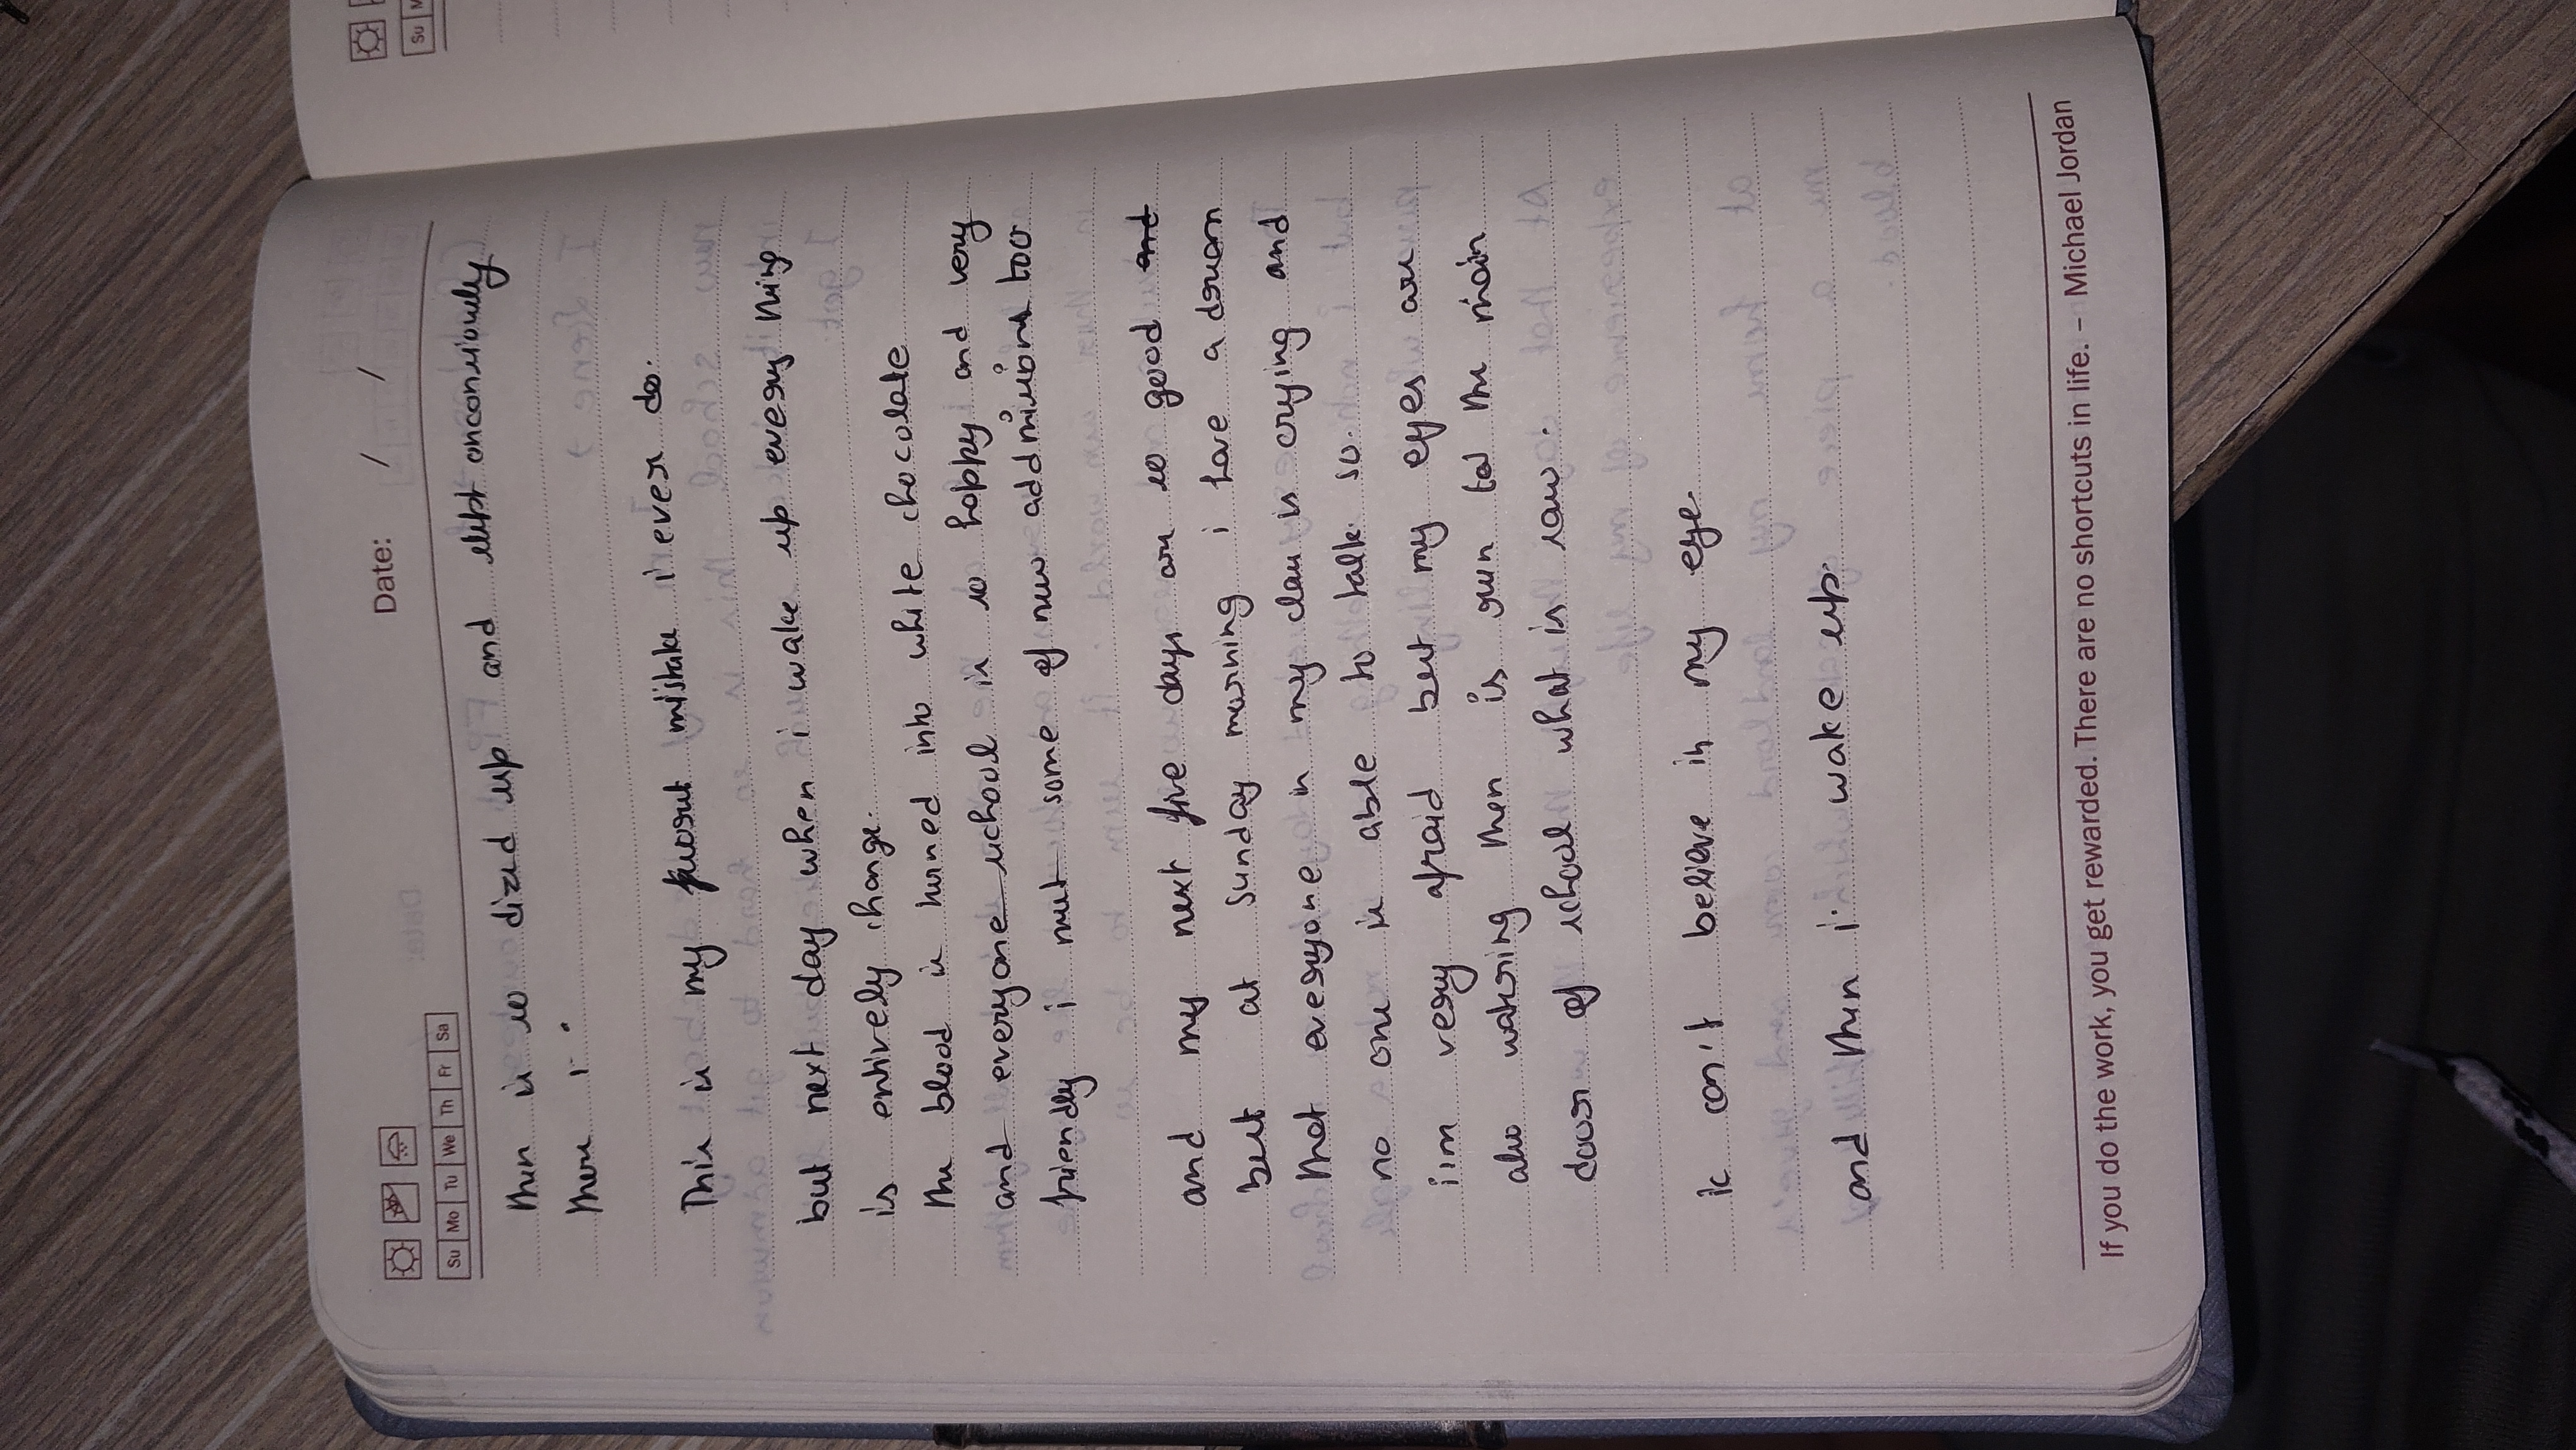 Date: / /
Su Mo Tu We Th Fr Sa
then is so dized up and slept onconsiously
there i.
This is my worst mistake i ever do.
but next day when i wake up every thing
is entirely change.
the blood is turned into white chocolate
and everyone school is so happy and very
friendly i meet some of new addmissions too
and my next five days are so good and
but at sunday morning i have a dream
that everyone in my class is crying and
no one is able to talk so.
i'm very afraid but my eyes are
also watering then is run to the main
door of school what is saw.
is con't believe in my eye.
and then i. wake up.
If you do the work, you get rewarded. There are no shortcuts in life. – Michael Jordan
Su